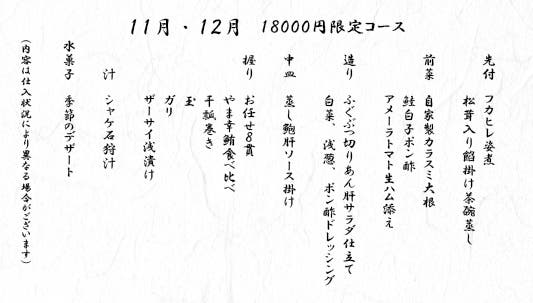 11月・12月　18000円限定コース
先付　フカヒレ姿煮
松茸入り餡掛け茶碗蒸し
前菜　自家製カラスミ大根
鮭白子ポン酢
アメーラトマト生ハム添え
造り　ふぐぶつ切りあん肝サラダ仕立て
白菜、浅葱、ポン酢ドレッシング
中皿　蒸し鮑肝ソース掛け
握り　お任せ8貫
やま幸鮪食べ比べ
干瓢巻き
玉
ガリ
ザーサイ浅漬け
汁　シャケ石狩汁
水菓子　季節のデザート
（内容は仕入状況により異なる場合がございます）